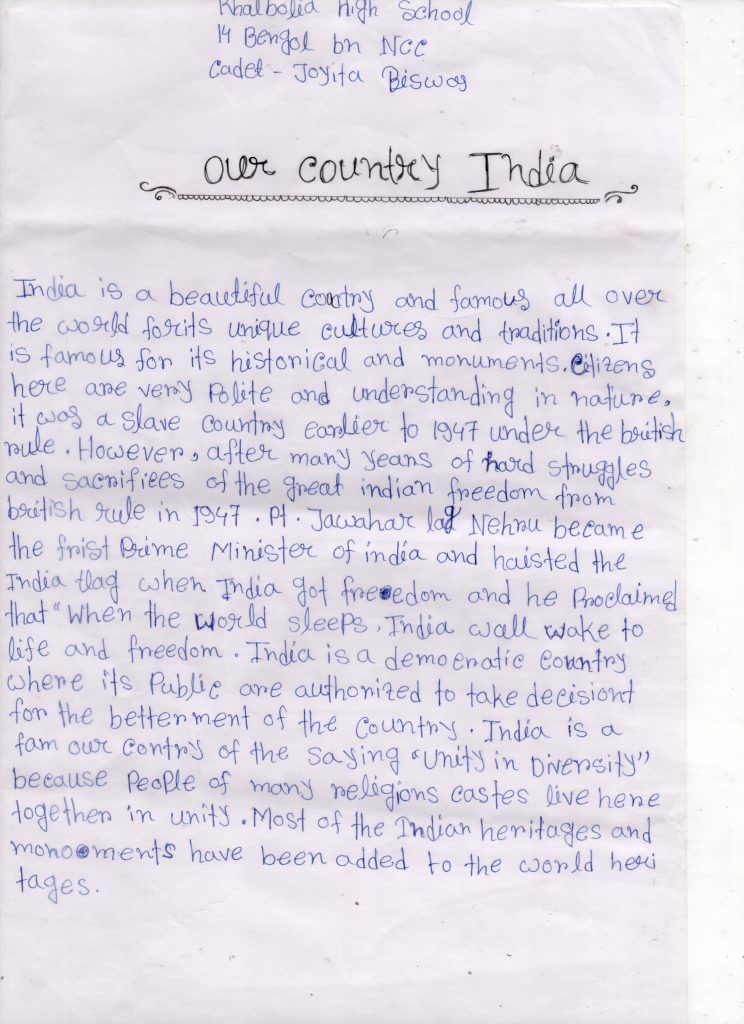 Khalbolia High School
14 Bengol bn NCC
Cadet - Joyita Biswas
Our Country India
India is a beautiful country and famous all over
the world forits unique cultures and traditions. It
is famous for its historical and monuments. Citizens
here are very Polite and understanding in nature,
it was a slave country earlier to 1947 under the british
rule. However, after many years of hard struggles
and sacrifiees of the great indian freedom from
british rule in 1947. Pt. Jawahar lal Nehru became
the frist Prime Minister of india and haisted the
India tlag when India got freedom and he Proclaimed
that "When the world sleeps, India wall wake to
life and freedom. India is a democratic country
where its Public are authorized to take decisiont
for the betterment of the country. India is a
fam our contry of the saying "Unity in Diversity"
because People of many religions castes live here
together in unity. Most of the Indian heritages and
monooments have been added to the world heri
tages.